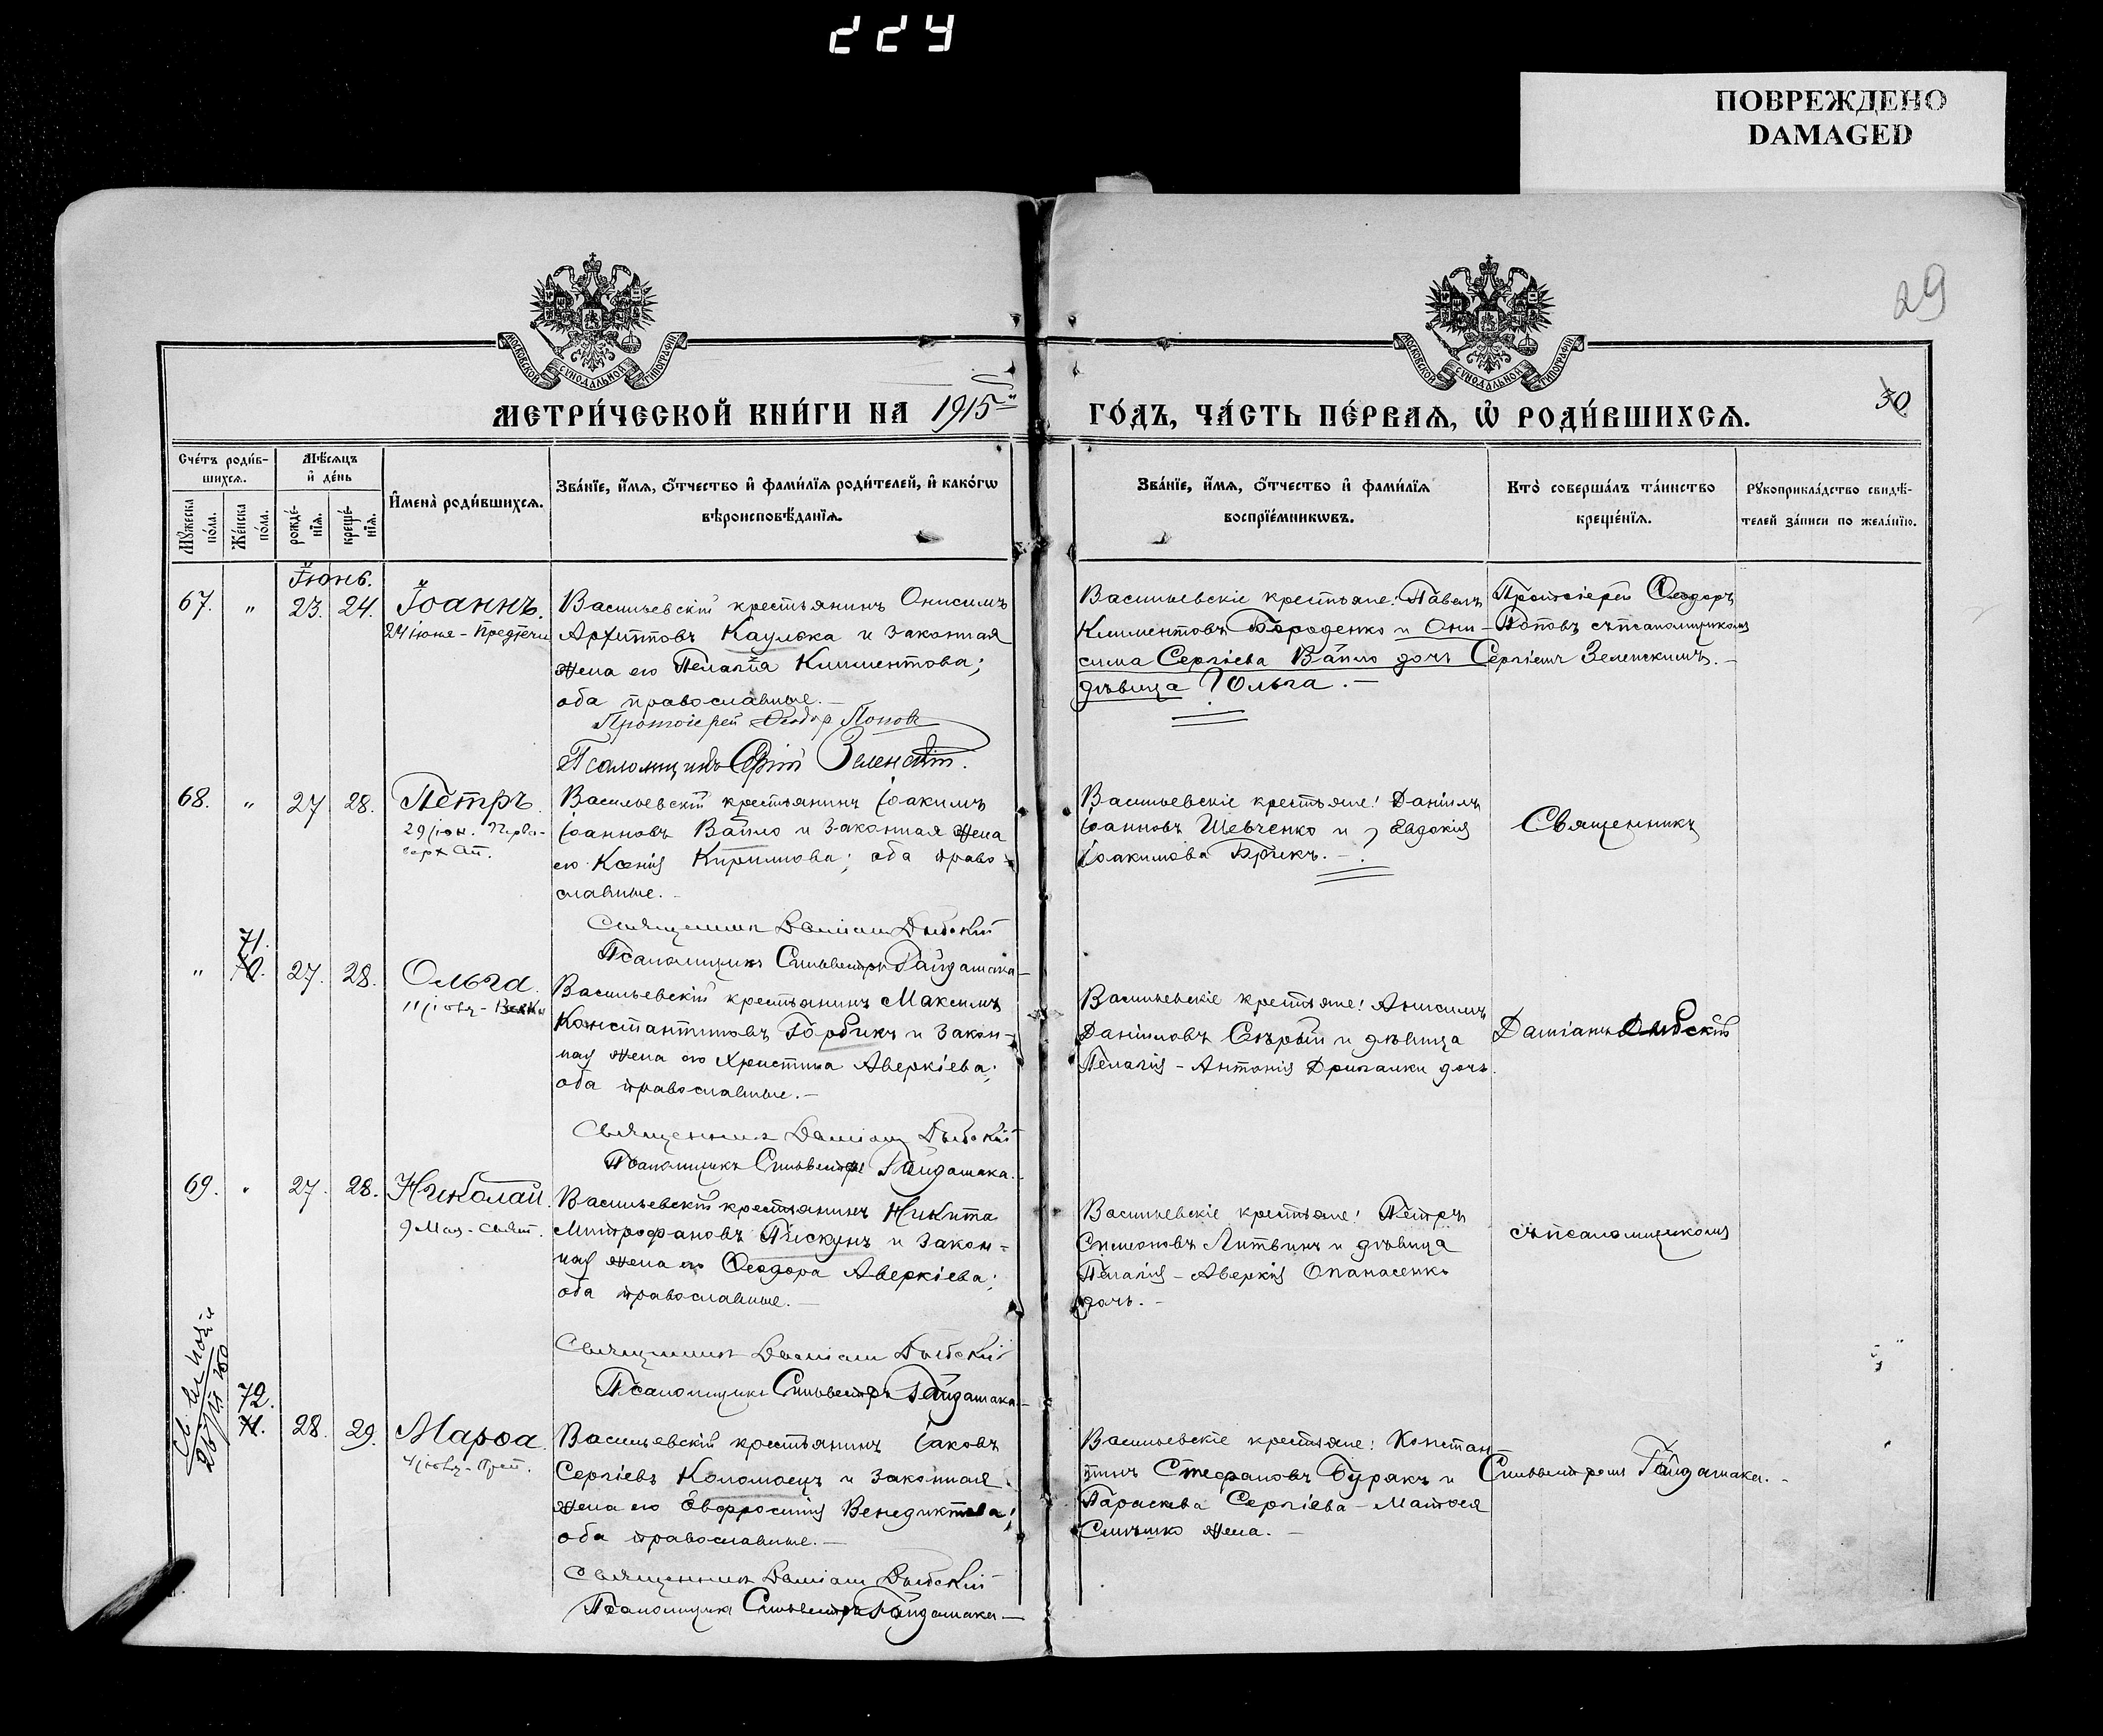 224
ПОВРЕЖДЕНО
DAMAGED
29
МОСКОВСКОЙ СУНОДАЛЬНОЙ ТИПОГРАФІИ
МОСКОВСКОЙ СУНОДАЛЬНОЙ ТИПОГРАФІИ
МЕТРИ́ЧЕСКОЙ КНИ́ГИ НА 1915
ГО́ДЪ, ЧА́СТЬ ПЕ́РВАѦ, Ѡ РОДИ́ВШИХСѦ.
30
Сче́тъ роди́в-
шихсѧ.
Мѣ́сѧцъ
и҆ де́нь
Му́жеска
по́ла.
Же́нска
по́ла.
рожде́-
нїѧ.
креще́-
нїѧ.
И҆мена̀ роди́вшихсѧ.
Зва́нїе, и҆́мѧ, ѻ҆́тчество и҆ фами́лїѧ роди́телей, и҆ како́гѡ
вѣроисповѣ́данїѧ.
Зва́нїе, и҆́мѧ, ѻ҆́тчество и҆ фами́лїѧ
воспрїе́мникѡвъ.
Кто̀ соверша́лъ та́инство
креще́нїѧ.
Рꙋкоприкла́дство свидѣ́-
телей за́писи по жела́нїю.
Іюнь.
67. " 23. 24. Іоаннъ.
24 іюня - Предтечи
Васильевскій крестьянинъ Онисимъ
Архиповъ Каулька и законная
жена его Пелагія Климентова;
оба православные.
Протоіерей Ѳеодоръ Поповъ
Псаломщикъ Сергій Зеленскій.
Васильевскіе крестьяне: Павелъ
Климентовъ Бороденко и Они-
сима Сергіева Вайло дочь
дѣвица Ольга.
Протоіерей Ѳеодоръ
Поповъ съ псаломщикомъ
Сергіемъ Зеленскимъ.
68. " 27 28. Петръ.
29 іюн. Перво-
верх Ап.
Васильевскій крестьянинъ Іоакимъ
Іоанновъ Вайло и законная жена
его Ксенія Кириллова; оба право-
славные.
Священникъ Даміанъ
Псаломщикъ Сильвестръ Гайдамака
Васильевскіе крестьяне: Даніилъ
Іоанновъ Шевченко и Евдокія
Іоакимова Брикъ.
Священникъ
71.
" 70. 27. 28. Ольга.
11 іюля -
Васильевскій крестьянинъ Максимъ
Константиновъ Горбикъ и закон-
ная жена его Христина Аверкіева;
оба православные.
Священникъ Даміанъ
Псаломщикъ Сильвестръ Гайдамака.
Васильевскіе крестьяне: Анисимъ
Даніиловъ Сѣрый и дѣвица
Пелагія - Антонія Дригалки дочь.
Даміанъ
69. " 27. 28. Николай.
9 Мая - Свят.
Васильевскій крестьянинъ Никита
Митрофановъ Пискунъ и закон-
ная жена его Ѳеодора Аверкіева;
оба православные.
Священникъ Даміанъ
Псаломщикъ Сильвестръ Гайдамака
Васильевскіе крестьяне: Петръ
Симеоновъ Литвинъ и дѣвица
Пелагія - Аверкія Опанасенко
дочь.
съ псаломщикомъ
72.
71. 28. 29. Марѳа.
Васильевскій крестьянинъ Іаковъ
Сергіевъ Коломоецъ и законная
жена его Евфросинія Венедиктова;
оба православные.
Священникъ Даміанъ
Псаломщикъ Сильвестръ Гайдамака
Васильевскіе крестьяне: Констан-
тинъ Стефановъ Бурякъ и
Параскева Сергіева - Матѳея
жена.
Сильвестромъ Гайдамака.